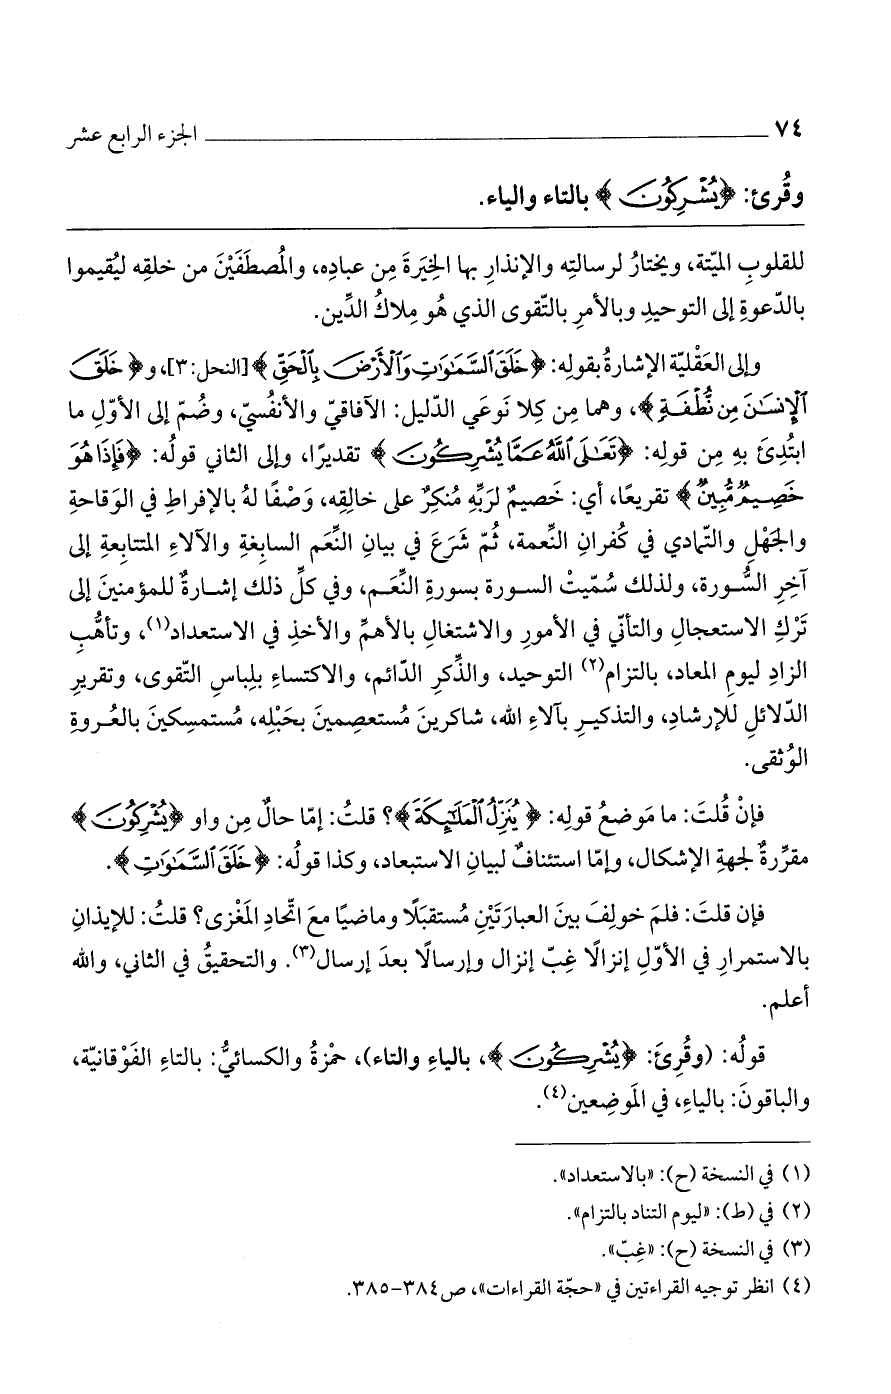 ٧٤ ــــــــــــــــــــ الجزء الرابع عشر
وقُرئ: ﴿يُشْرِكُونَ﴾ بالتاء والياء.
للقلوبِ الميّتة، ويختارُ لرسالتِه والإنذارِ بها الخِيَرةَ مِن عبادِه، والمُصطَفَيْنَ من خلقِه ليُقيموا
بالدّعوةِ إلى التوحيدِ وبالأمرِ بالتّقوى الذي هُو مِلاكُ الدِّين.
وإلى العَقْليّة الإشارةُ بقولِه: ﴿خَلَقَ ٱلسَّمَٰوَٰتِ وَٱلْأَرْضَ بِٱلْحَقِّ﴾ [النحل:٣]، و﴿خَلَقَ
ٱلْإِنسَٰنَ مِن نُّطْفَةٍ﴾، وهما مِن كِلا نَوعَي الدّليل: الآفاقيّ والأنفُسيّ، وضُمّ إلى الأوّلِ ما
ابتُدِئَ بهِ مِن قولِه: ﴿تَعَٰلَى ٱللَّهُ عَمَّا يُشْرِكُونَ﴾ تقديرًا، وإلى الثاني قولُه: ﴿فَإِذَا هُوَ
خَصِيمٌ مُّبِينٌ﴾ تقريعًا، أي: خَصيمٌ لرَبِّهِ مُنكِرٌ على خالقِه، وَصْفًا لهُ بالإفراطِ في الوَقاحةِ
والجَهْلِ والتّمادي في كُفرانِ النِّعمة، ثُمّ شَرَعَ في بيانِ النِّعَم السابغةِ والآلاءِ المتتابعةِ إلى
آخِرِ السُّورة، ولذلك سُمّيتْ السورة بسورةِ النِّعَم، وفي كلِّ ذلك إشارةٌ للمؤمنينَ إلى
تَرْكِ الاستعجالِ والتأنّي في الأمورِ والاشتغالِ بالأهمِّ والأخذِ في الاستعداد(١)، وتأهُّبِ
الزادِ ليومِ المعاد، بالتزام(٢) التوحيد، والذِّكرِ الدّائم، والاكتساءِ بلِباسِ التّقوى، وتقريرِ
الدّلائلِ للإرشادِ، والتذكيرِ بآلاءِ الله، شاكرينَ مُستعصِمينَ بحَبْلِه، مُستمسِكينَ بالعُروةِ
الوُثقى.
فإنْ قُلتَ: ما مَوضعُ قولِه: ﴿يُنَزِّلُ ٱلْمَلَٰٓئِكَةَ﴾؟ قلتُ: إمّا حالٌ مِن واو ﴿يُشْرِكُونَ﴾
مقرِّرةٌ لجهةِ الإشكال، وإمّا استئنافٌ لبيانِ الاستبعاد، وكذا قولُه: ﴿خَلَقَ ٱلسَّمَٰوَٰتِ﴾.
فإن قلتَ: فلمَ خولِفَ بينَ العبارَتَيْنِ مُستقبَلًا وماضيًا معَ اتّحادِ المَغْزى؟ قلتُ: للإيذانِ
بالاستمرارِ في الأوّلِ إنزالًا غِبّ إنزال وإرسالًا بعدَ إرسال(٣). والتحقيقُ في الثاني، والله
أعلم.
قولُه: (وقُرِئَ: ﴿يُشْرِكُونَ﴾، بالياءِ والتاء)، حمْزةُ والكسائيُّ: بالتاءِ الفَوْقانيّة،
والباقونَ: بالياءِ، في المَوضِعين(٤).
(١) في النسخة (ح): «بالاستعداد».
(٢) في (ط): «ليوم التناد بالتزام».
(٣) في النسخة (ح): «غِبّ».
(٤) انظر توجيه القراءتين في «حجّة القراءات»، ص٣٨٤-٣٨٥.